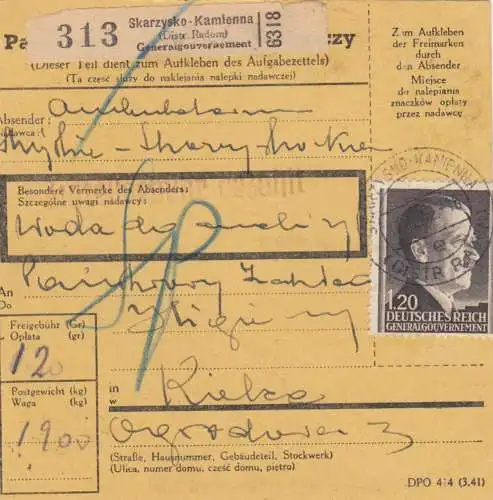 313 Skarzysko-Kamienna
(Distr. Radom)
Generalgouvernement
6318
(Dieser Teil dient zum Aufkleben des Aufgabezettels)
(Ta część służy do naklejania nalepki nadawczej)
Zum Aufkleben
der Freimarken
durch
den Absender
Miejsce
do nalepiania
znaczków opłaty
przez nadawcę
Absender:
Nadawca:
Besondere Vermerke des Absenders:
Szczególne uwagi nadawcy:
Woda do analizy
An
Do
Państwowy Zakład
Higieny
Freigebühr (Gr)
Opłata (gr)
120
Postgewicht (kg)
Waga (kg)
1900
in
w
Kielce
Ogrodowa 3
(Straße, Hausnummer, Gebäudeteil, Stockwerk)
(Ulica, numer domu, część domu, piętro)
DPO 414 (3.41)
SKARZYSKO-KAMIENNA
(DISTR. RADOM)
1.20
DEUTSCHES REICH
GENERALGOUVERNEMENT